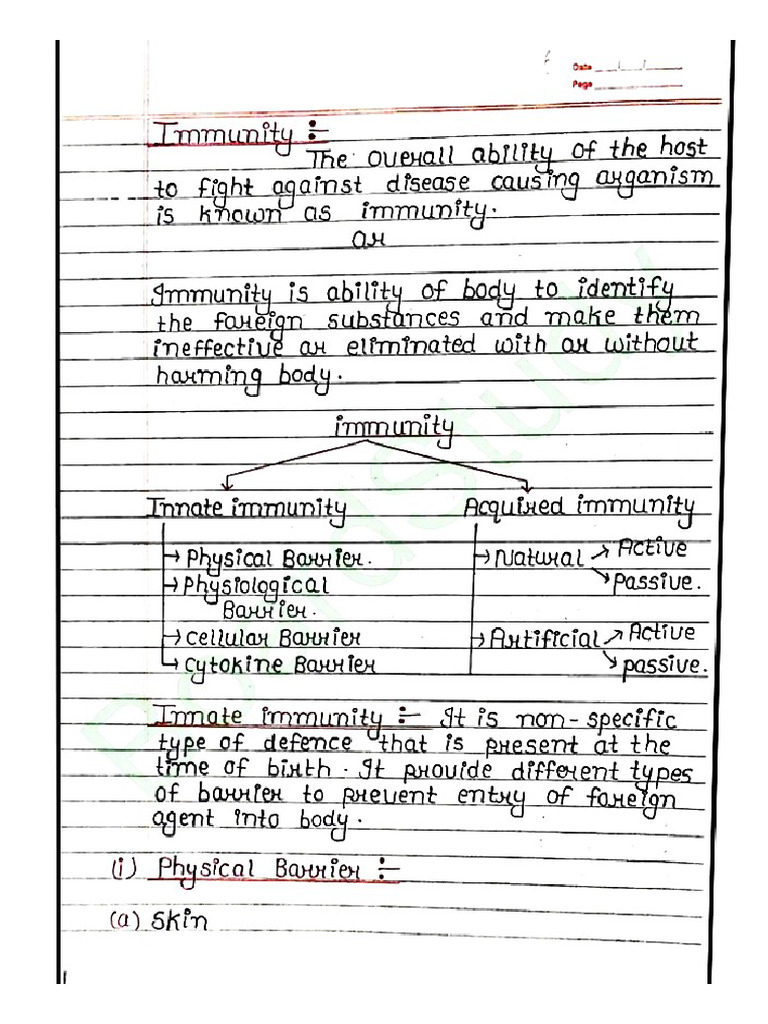 Date __/__/__
Page ______
Immunity :-
The overall ability of the host
to fight against disease causing organism
is known as immunity.
or
Immunity is ability of body to identify
the foreign substances and make them
ineffective or eliminated with or without
harming body.
immunity
Innate immunity Acquired immunity
→ Physical Barrier. → Natural ↗ Active
→ Physiological ↘ passive.
Barrier.
→ cellular Barrier → Artificial ↗ Active
→ cytokine Barrier ↘ passive.
Innate immunity :- It is non-specific
type of defence that is present at the
time of birth. It provide different types
of barrier to prevent entry of foreign
agent into body.
(i) Physical Barrier :-
(a) Skin